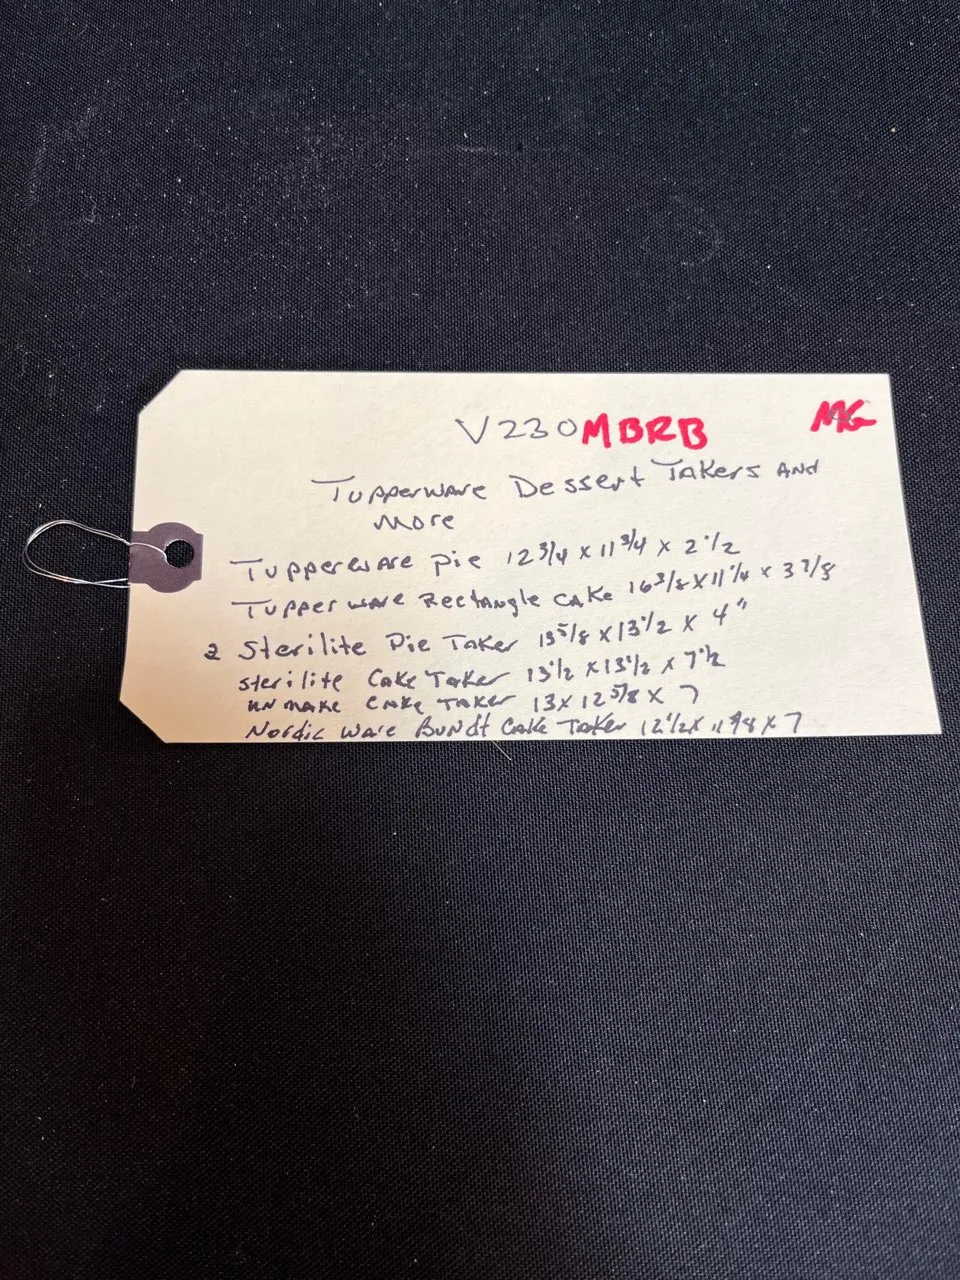 V230 MBRB MG
Tupperware Dessert Takers and
more
Tupperware Pie 12 3/4 x 11 3/4 x 2 1/2
Tupperware Rectangle cake 16 3/8 x 11 1/4 x 3 7/8
2 Sterilite Pie Taker 13 5/8 x 13 1/2 x 4"
Sterilite Cake Taker 13 1/2 x 13 1/2 x 7 1/2
un make Cake Taker 13 x 12 5/8 x 7
Nordic Ware Bundt Cake Taker 12 1/2 x x 7